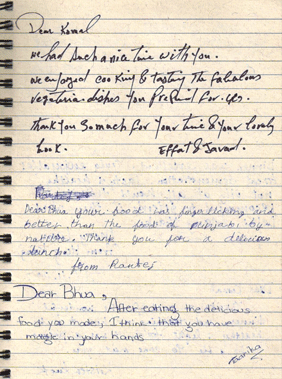 Dear Komal
we had such a nice time with you.
we enjoyed cooking & tasting the fabulous
vegetarian dishes you prepared for us.
thank you so much for your time & your lovely
book. Effat & Javad.
Dear Bhua your food was fingerlicking and
better than the food of punjab by
nature. Thank you for a delicious
lunch.
from
Dear Bhua,
After eating the delicious
food you made, I think that you have
magic in your hands